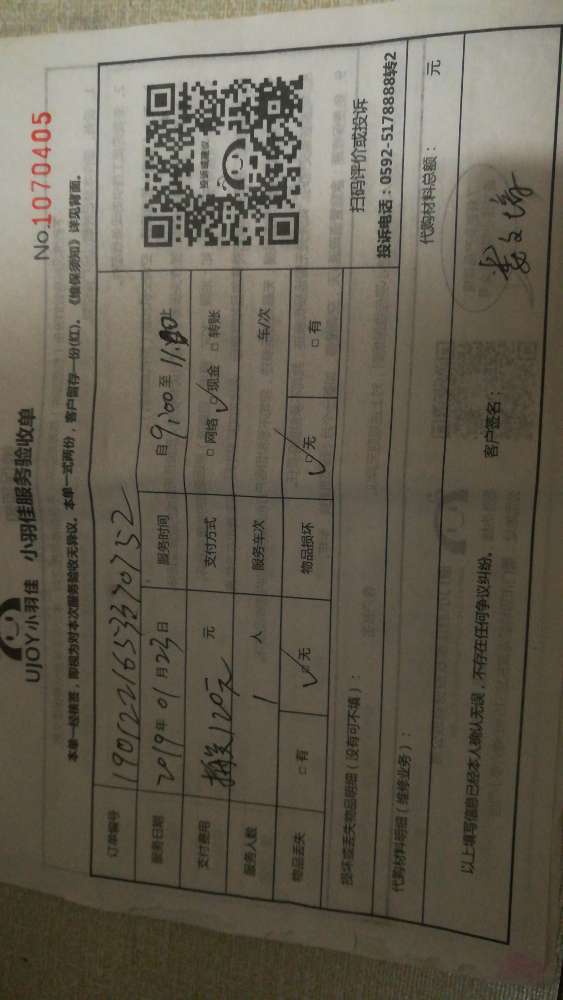 No.1070405
UJOY小羽佳 小羽佳服务验收单
本单一经核签，即视为对本次服务验收无异议。本单一式两份，客户留存一份(红)，《维保须知》详见背面。
订单编号 19012216533370752
服务日期 2019年01月23日 服务时间 自9:00至11:00止
支付费用 120元 元 支付方式 □网络 □✓现金 □转账
服务人数 1 人 服务车次 车/次
物品丢失 □有 □✓无 物品损坏 □✓无 □有
投诉或建议
扫码评价或投诉
投诉电话：0592-5178888转2
损坏或丢失物品明细（没有可不填）：
代购材料明细（维修业务）： 代购材料总额： 元
以上填写信息已经本人确认无误，不存在任何争议纠纷。 客户签名：